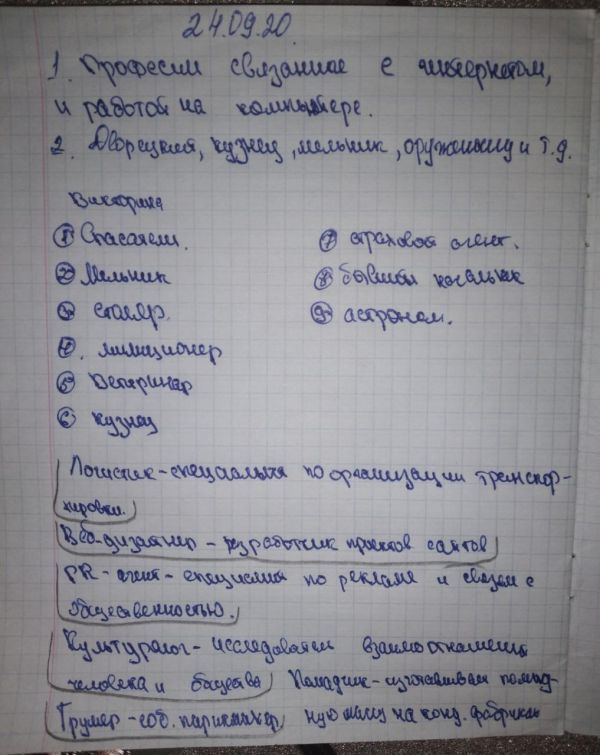 24.09.20
1. Професии связанное с интернетом,
и работой на компьютере.
2. Дворецкий, кузнец, мельник, оруженосец и т.д.
Викторина
① Спасатели.
② Мельник
③ столяр.
④. милиционер
⑤ Ветеринар
⑥ кузнец
⑦ страховой агент.
⑧ бывший начальник
⑨ астроном.
Логистик - специалист по организации транспор-
тировки.
Веб-дизайнер - разработчик проектов сайтов
PR - агент - специалист по рекламе и связям с
общественностью.
Культуролог - исследователь взаимоотношений
человека и общества Помадчик - изготавливает помад-
Грумер - соб. парикмахер ную массу на конд. фабриках